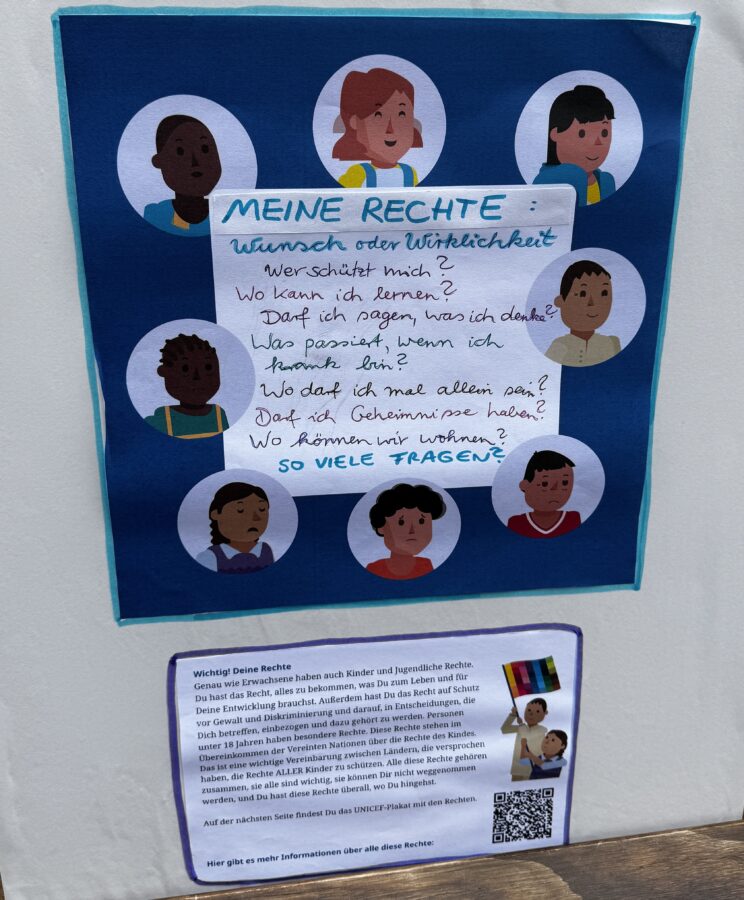 MEINE RECHTE :
Wunsch oder Wirklichkeit
Wer schützt mich?
Wo kann ich lernen?
Darf ich sagen, was ich denke?
Was passiert, wenn ich
krank bin?
Wo darf ich mal allein sein?
Darf ich Geheimnisse haben?
Wo können wir wohnen?
SO VIELE FRAGEN?
Wichtig! Deine Rechte
Genau wie Erwachsene haben auch Kinder und Jugendliche Rechte.
Du hast das Recht, alles zu bekommen, was Du zum Leben und für
Deine Entwicklung brauchst. Außerdem hast Du das Recht auf Schutz
vor Gewalt und Diskriminierung und darauf, in Entscheidungen, die
Dich betreffen, einbezogen und dazu gehört zu werden. Personen
unter 18 Jahren haben besondere Rechte. Diese Rechte stehen im
Übereinkommen der Vereinten Nationen über die Rechte des Kindes.
Das ist eine wichtige Vereinbarung zwischen Ländern, die versprochen
haben, die Rechte ALLER Kinder zu schützen. Alle diese Rechte gehören
zusammen, sie alle sind wichtig, sie können Dir nicht weggenommen
werden, und Du hast diese Rechte überall, wo Du hingehst.
Auf der nächsten Seite findest Du das UNICEF-Plakat mit den Rechten.
Hier gibt es mehr Informationen über alle diese Rechte: